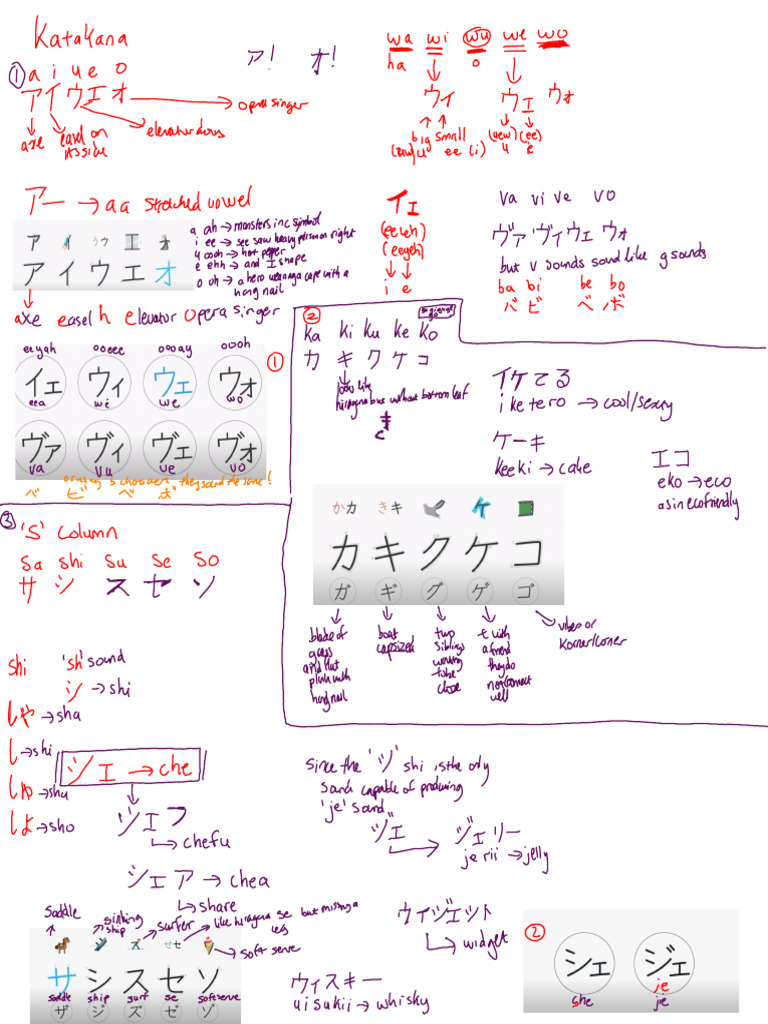 Katakana
ア! オ!
① a i u e o
アイウエオ
opera singer
axe
easel on its side
elevator doors
wa wi wu we wo
ha o
ウィ ウェ ウォ
big small
u ee (i)
(ee)
u e
アー → aa stretched vowel
ア イ ウ エ オ
a ah → monsters inc symbol
i ee → see saw heavy person on right
u oooh → hot pepper
e ehh → and エ shape
o oh → a hero wearing a cape with a hang nail
axe easel h elevator opera singer
イェ
(ee eh)
(eeyeh)
i e
va vi ve vo
ヴァ ヴィ ヴェ ヴォ
but v sounds sound like g sounds
ba bi be bo
バ ビ ベ ボ
eeyah ooeee oooay oooh
①
イェ ウィ ウェ ウォ
eea wi we wo
ヴァ ヴィ ヴェ ヴォ
va vu ve vo
バ ビ ベ ボ they sound the same!
②
ka ki ku ke ko
カ キ ク ケ コ
looks like hiragana but without bottom leaf
き
イケてる
iketero → cool/sexy
ケーキ
keeki → cake
エコ
eko → eco
as in eco friendly
かカ きキ ケ
カ キ ク ケ コ
ガ ギ グ ゲ ゴ
blade of grass and flat plank with hang nail
boat capsized
two siblings wanting to be close
t with a friend they do not connect well
vibes or Korner/corner
③ 's' column
sa shi su se so
サ シ ス セ ソ
shi 'sh' sound
シ → shi
しゃ → sha
し → shi
しゅ → shu
しょ → sho
シェ → che
シェフ
chefu
シェア → chea
share
since the 'シ' shi is the only
sound capable of producing
'je' sound
ジェ
ジェリー
je rii → jelly
saddle
sinking ship
surfer
like hiragana se but missing a leg
soft serve
サ シ ス セ ソ
saddle ship surf se softserve
ザ ジ ズ ゼ ゾ
ウィジェット
widget
ウィスキー
uisukii → whisky
②
シェ ジェ
she je
je